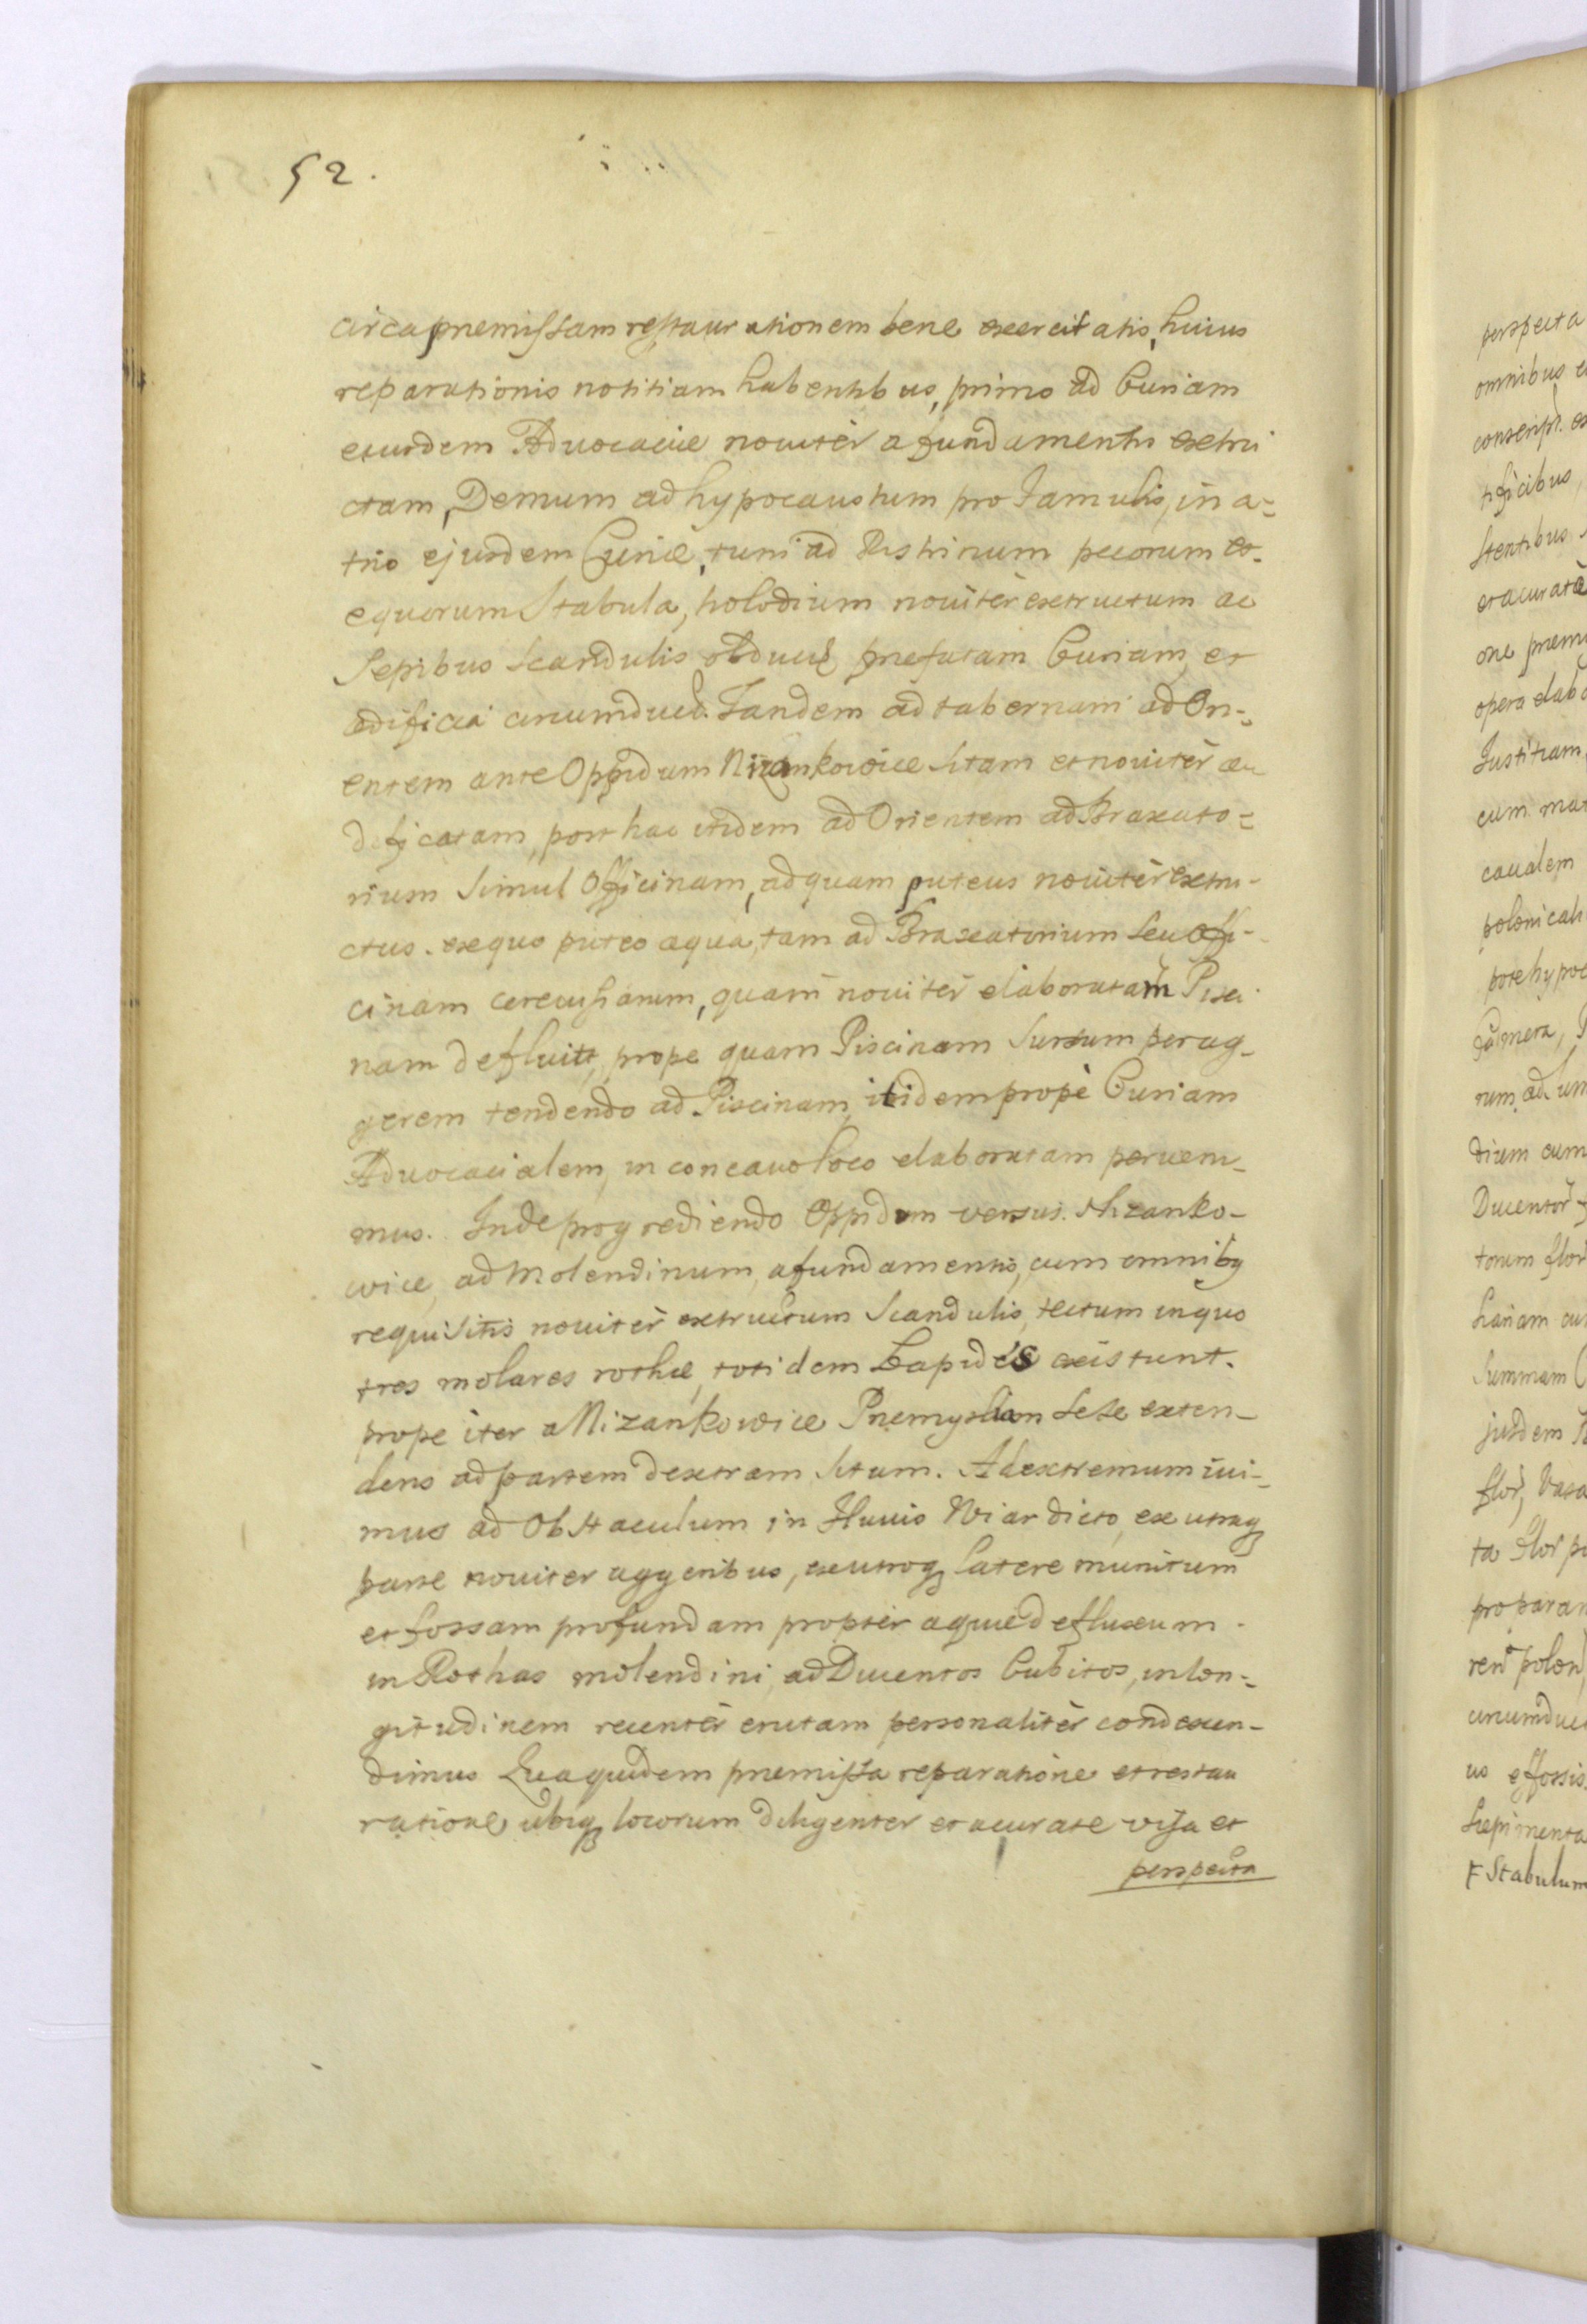 52.
circa premissam restaurationem bene exercitatis, huius
reparationis notitiam habentibus, primo ad Curiam
eiusdem Advocaciæ noviter a fundamentis extru
ctam, Demum ad hypocaustum pro famulis, in a-
trio ejusdem Curiæ, tum ad Pistrinum pecorum et
equorum Stabula, holodium noviter extructum ac
Sepibus Scandulis obduct prefatam Curiam, et
ædificia circumduct. Tandem ad tabernam ad Ori-
entem ante Oppidum Nizankowice sitam et noviter æ
dificatam, post hac itidem ad Orientem ad Braxato-
rium simul Officinam, ad quam puteus noviter extru-
ctus. ex quo puteo aqua, tam ad Braxatorium seu Offi-
cinam cerevisiarum, quam noviter elaboratam Pisci
nam defluit, prope quam Piscinam sursum per ag-
gerem tendendo ad Piscinam itidem propè Curiam
Advocacialem, in concavo loco elaboratam perveni-
mus. Inde progrediendo Oppidum versus Nizanko-
wice, ad Molendinum, a fundamentis, cum omnibq
requisitis noviter extructum Scandulis, tectum in quo
tres molares rothæ, totidem Lapides existunt.
prope iter a Nizankowice Premysliam sese exten-
dens ad partem dextram situm. Ad extremum ivi-
mus ad Obstaculum in Fluvio Wiar dicto, ex utraq
parte noviter aggeribus, ex utroq latere munitum
et fossam profundam propter aquæ defluxum
in Rothas molendini, ad Ducentos Cubitos, in lon-
gitudinem recenter erutam personaliter condescen-
dimus Qua quidem premissa reparatione et restau
ratione ubiq locorum diligenter et acurate visa et
perspecta
perspecta
omnibus
conscript.
tificibus,
stentibus
et acurate
one prem
opera elabo
Justitiam,
cum
caualem
polonicali

rum, ad
dium cum
Ducentor
torum flor

Summam
jusdem
flor,
ta Flor
pro
ren polon
circumduc
us effossis
Sepimenta
Stabulum